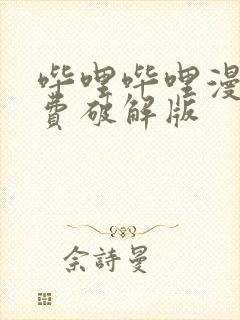 哔哩哔哩漫
费破解版
佘詩曼